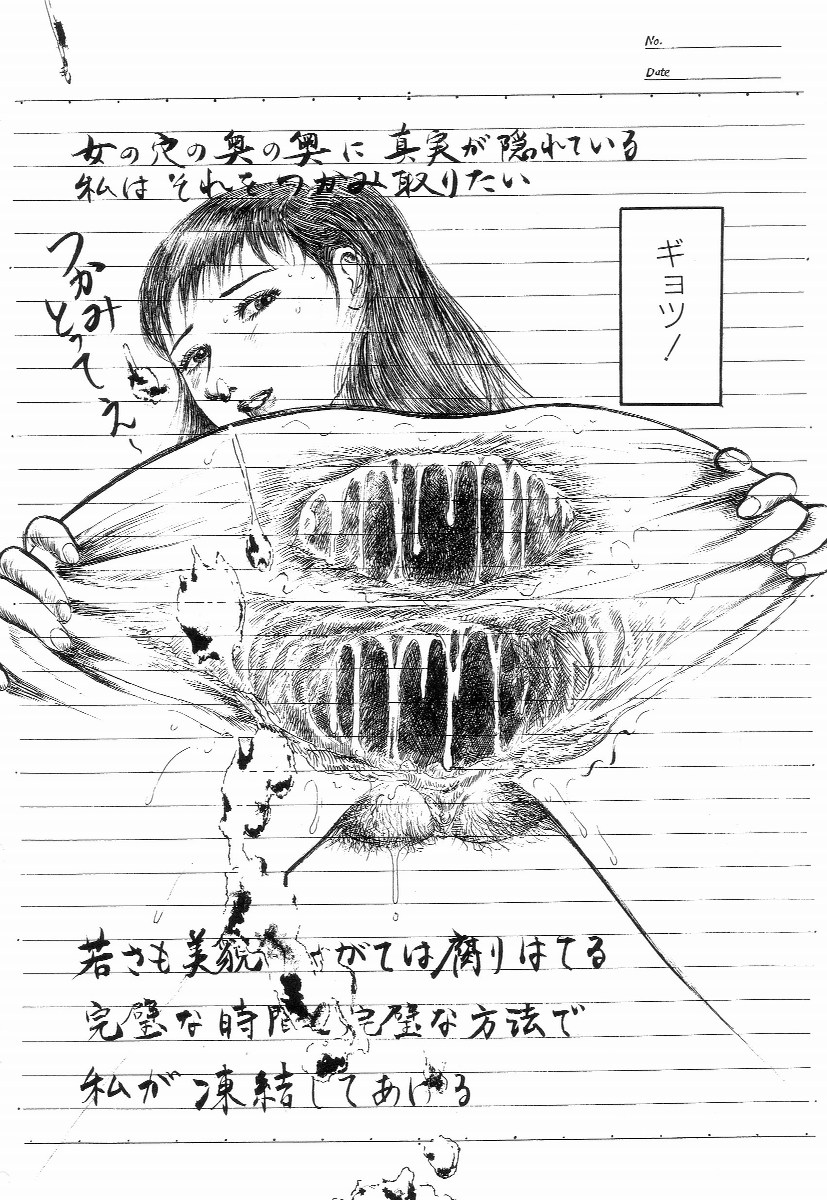 No.
Date
女の穴の奥の奥に 真実が隠れている
私は それを つかみ取りたい
ギョッ!
つかみ
とって
え~
若さも美貌 がては腐りはてる
完璧な時間 完璧な方法で
私が 凍結してあげる